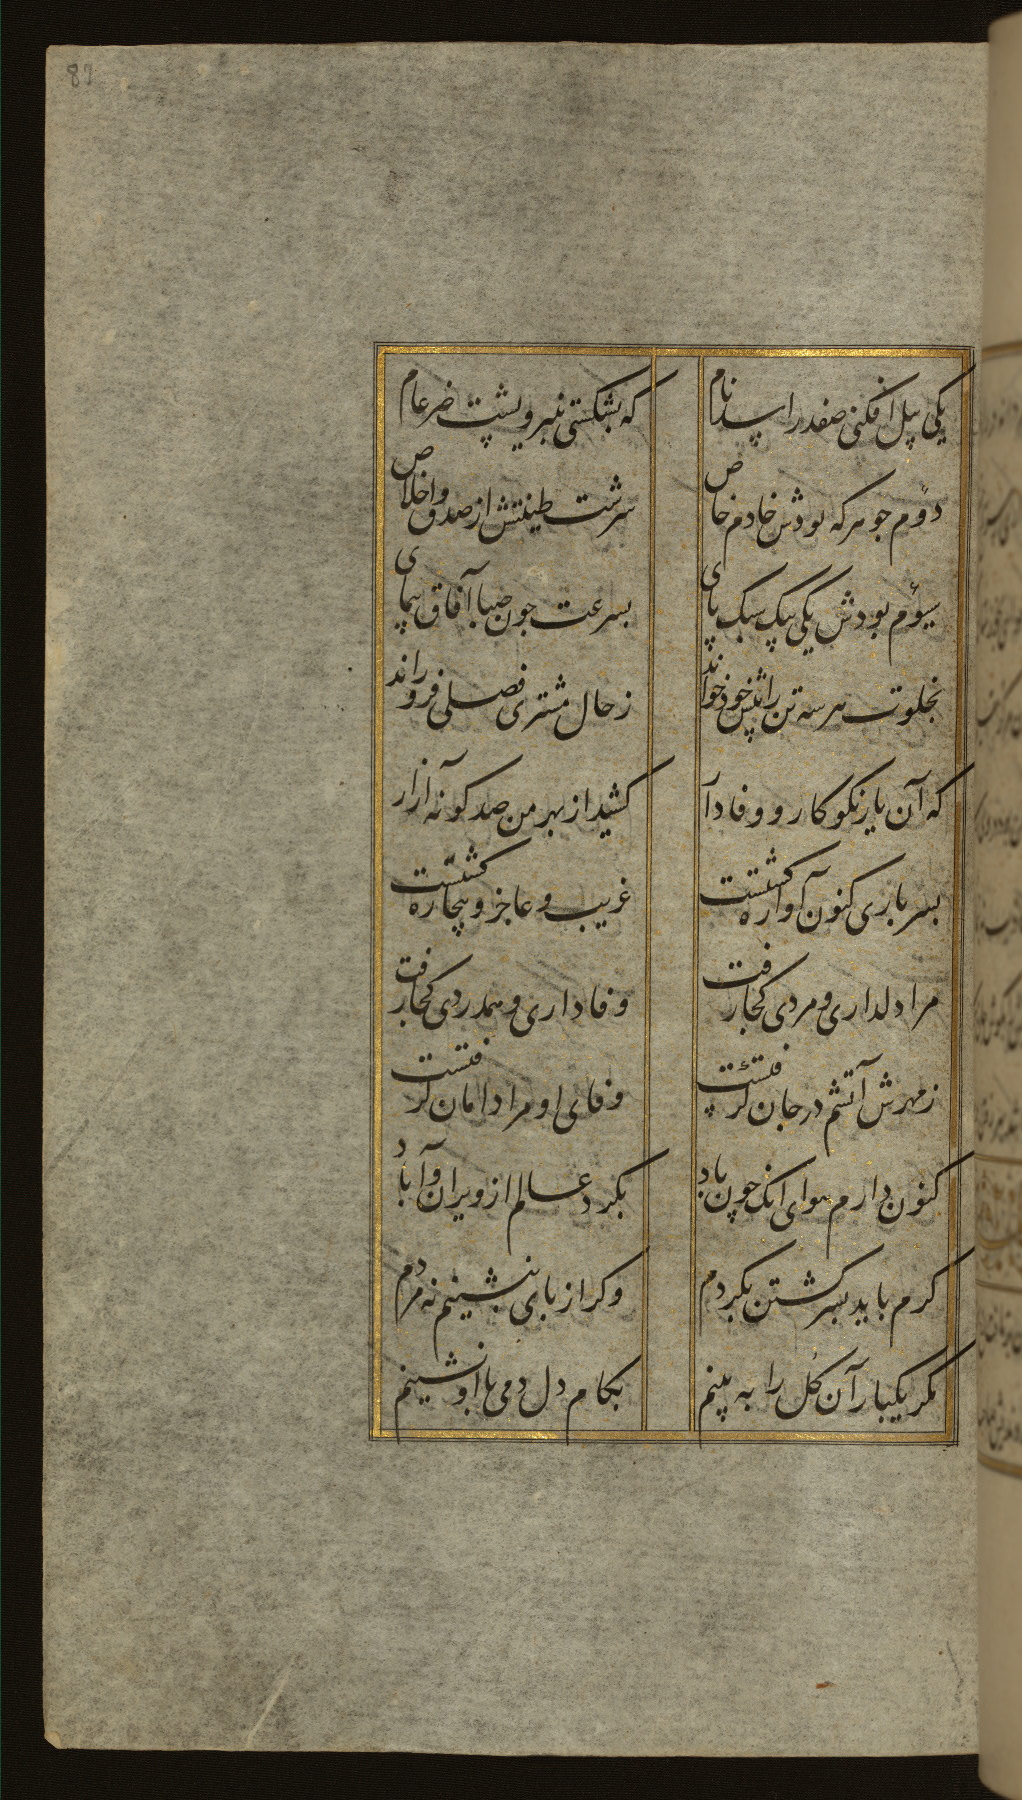 87
یکی پیل افکنی صفدر اسد نام
که بشکستی بنیرو پشت ضرغام
دوم جوهر که بودش خادم خاص
سرشت طینتش از صدق و اخلاص
سیوم بودش یکی پیک سبک پای
بسرعت چون صبا آفاق پیمای
بخلوت هر سه تن را پیش خود خواند
ز حال مشتری فصلی فرو راند
که آن یار نکو کار و وفادار
کشید از بهر من صد کونه آزار
بسر باری کنون آواره کشتست
غریب و عاجز و بیچاره کشتست
مرا دلداری و مردی کجا رفت
وفاداری و همدردی کجا رفت
ز مهرش آتشم در جان کرفتست
وفای او مرا دامان کرفتست
کنون دارم هوای انک چون باد
بکرد عالم از ویران و آباد
کرم باید بسر کشتن بکردم
وکر از پای ننشینم نه مردم
مکر یکبار آن کل را به بینم
بکام دل دمی با او نشینم